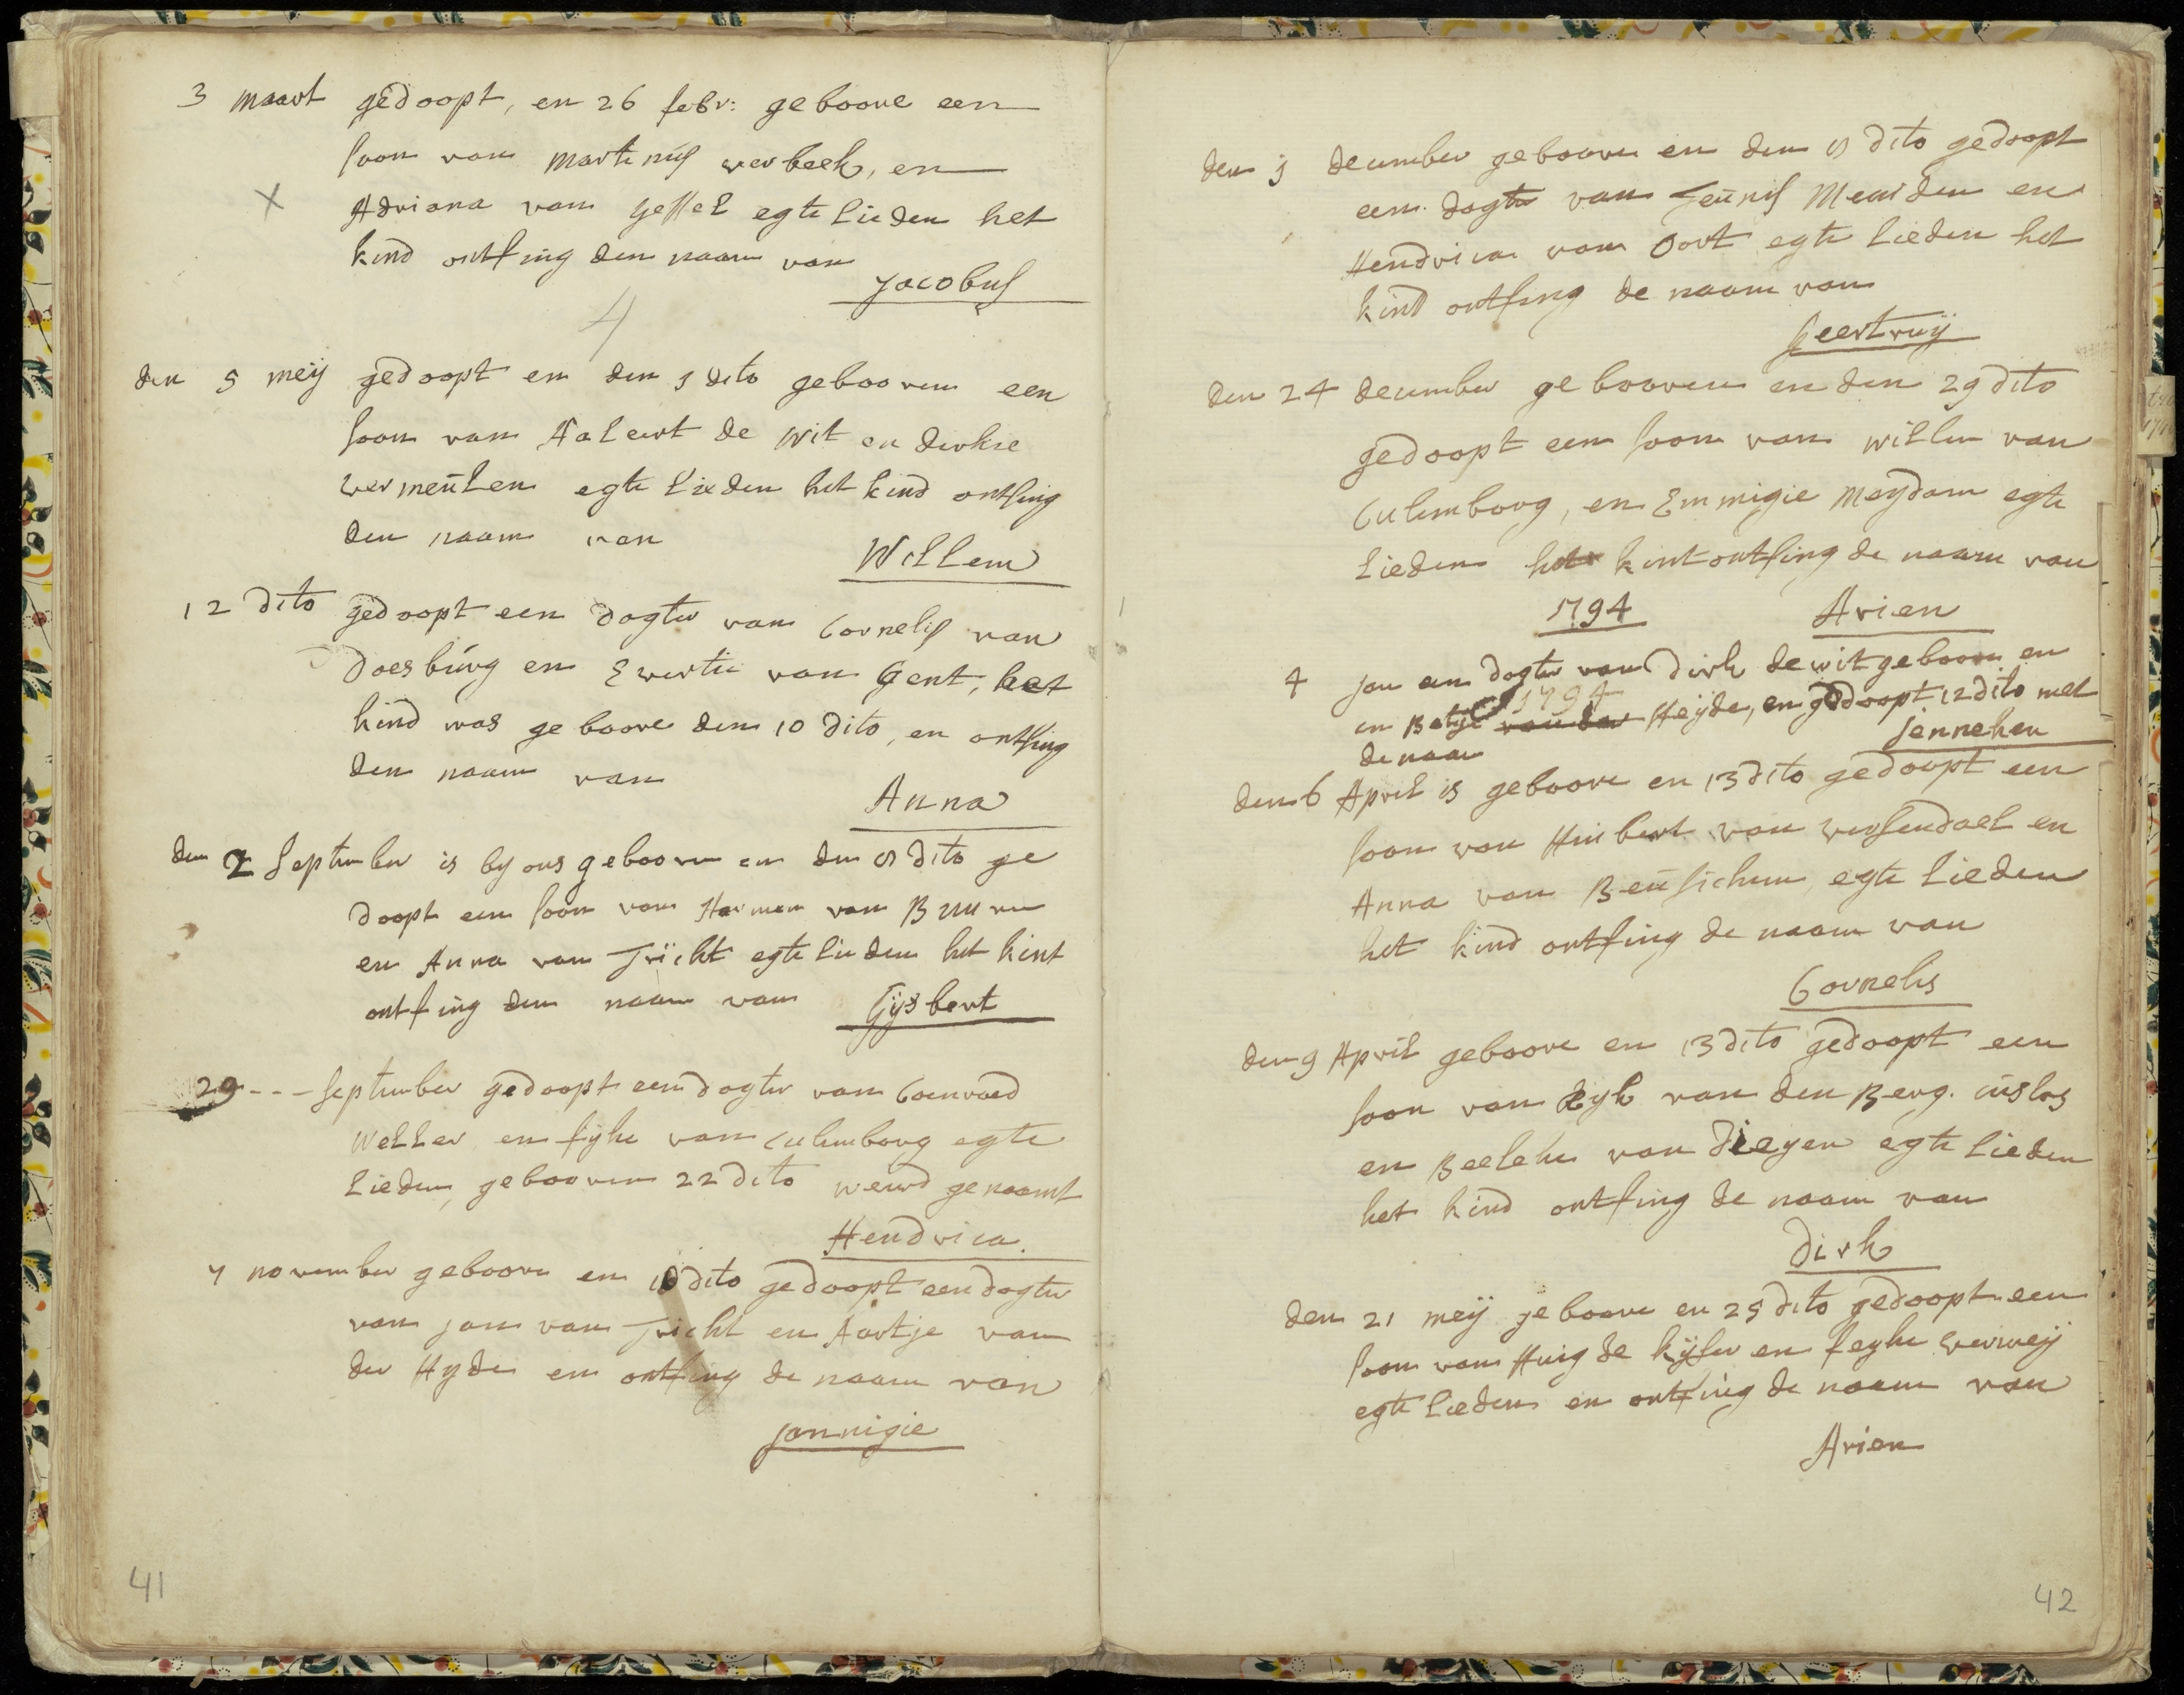 3 maart gedoopt, en 26 febr: geboore een
soon van Martinus verbeek, en
X Adriana van gessel egte lieden het
kind ontfing den naam van
Jacobus
4
den 5 meij gedoopt en den 3 dito gebooren een
soon van Aalewt de wit en dirkie
vermeulen egte lieden het kind ontfing
den naam van
Willem
12 dito gedoopt een dogter van Cornelis van
Doesburg en Evertie van Gent, het
kind was geboore den 10 dito, en ontfing
den naam van
Anna
den 2 September is by ons gebooren en den 8 dito ge
doopt een soon van Harmen van Buuren
en Anna van Tricht egte lieden het kint
ontfing den naam van Gysbert
29 - - - September gedoopt een dogter van Coenraed
Weller en fyke van Culemborg egte
Lieden, gebooren 22 dito werd genaamt
Hendrica.
7 november geboore en 10 dito gedoopt een dogter
van jan van Tricht en Aartje van
der Hyde en ontfing de naam van
jannigie
41
den 3 december gebooren en den 8 dito gedoopt
een dogter van Teunis Merden en
Hendrica van Oort egte lieden het
kind ontfing de naam van
Geertruij
den 24 december gebooren en den 29 dito
gedoopt een soon van willem van
Culemborg, en Emmigie Meydam egte
Lieden het kint ontfing de naam van
1794 Arien
4 jan een dogter van Dirk de wit geboore en
1794
en Betje van der Heyde, en gedoopt 12 dito met
de naam jenneken
den 6 April is geboore en 13 dito gedoopt een
soon van Huibert van versendael en
Anna van Beusichem, egte lieden
het kind ontfing de naam van
Cornelis
den 9 April geboore en 13 dito gedoopt een
soon van Ryk van den Berg.
en Beeleke van Diegen egte lieden
het kind ontfing de naam van
Dirk
den 21 meij geboore en 25 dito gedoopt een
soon van Huig de kijser en feyke verweij
egte lieden en ontfing de naam van
Arien
42